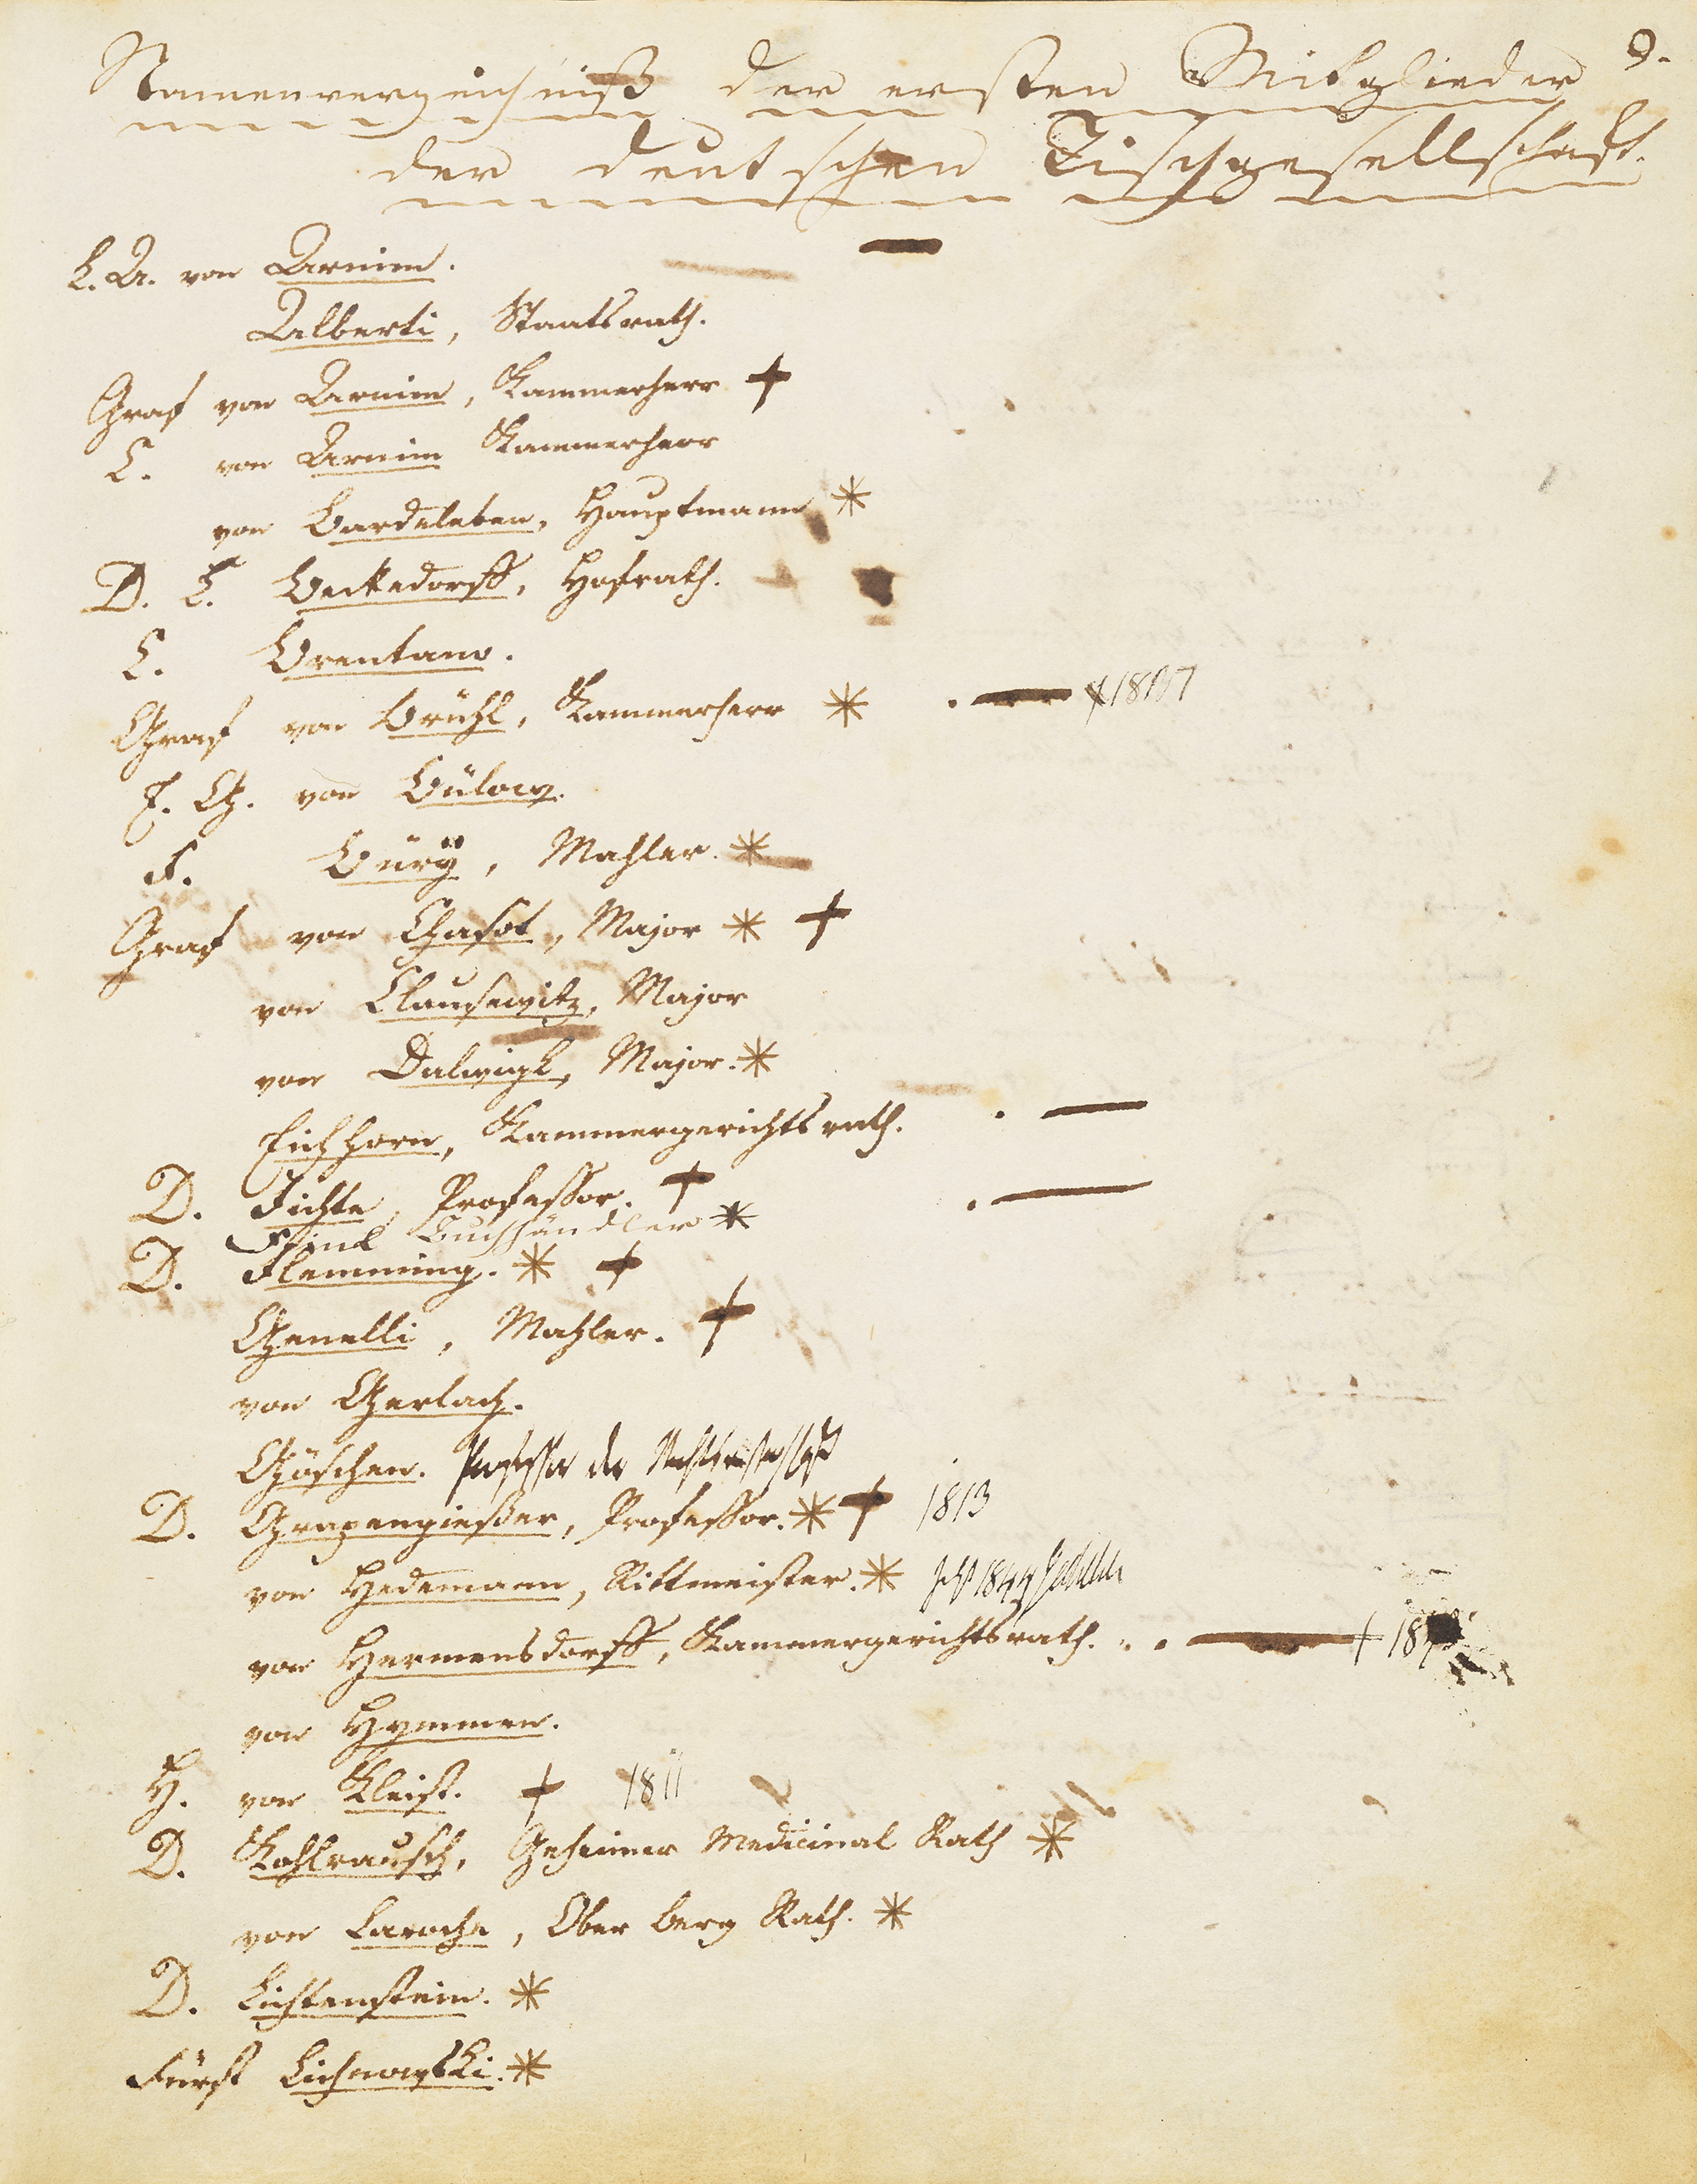 Namenverzeichniß der ersten Mitglieder
der deutschen Tischgesellschaft.
L. A. von Arnim.
Alberti, Staatsrath.
Graf von Arnim, Kammerherr +
C. von Arnim Kammerherr
von Bardeleben, Hauptmann *
D. L. Beckedorff, Hofrath.
C. Brentano.
Graf von Brühl, Kammerherr * +1837
F. G. von Bülow.
F. Bürÿ, Mahler. *
Graf von Chasot, Major * +
von Clausewitz, Major
von Dalwigk, Major. *
Eichhorn, Kammergerichtsrath.
D. Fichte, Professor. +
Fink Buchhändler *
D. Flemming. * +
Genelli, Mahler. +
von Gerlach.
Göschen. Professor der Rechtswissenschaft
D. Grapengießer, Professor. * + 1813
von Hedemann, Rittmeister. * jetzt 1844
von Hermensdorff, Kammergerichtsrath. +
von Hymmen.
H. von Kleist. + 1811
D. Kohlrausch, Geheimer Medicinal Rath *
von Laroche, Ober Berg Rath. *
D. Lichtenstein. *
Fürst Lichnowski. *